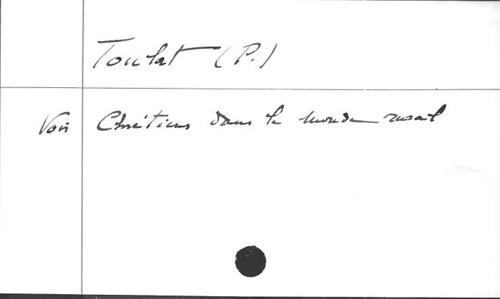 Toulat (P.)
Voir Chrétiens dans le monde rural